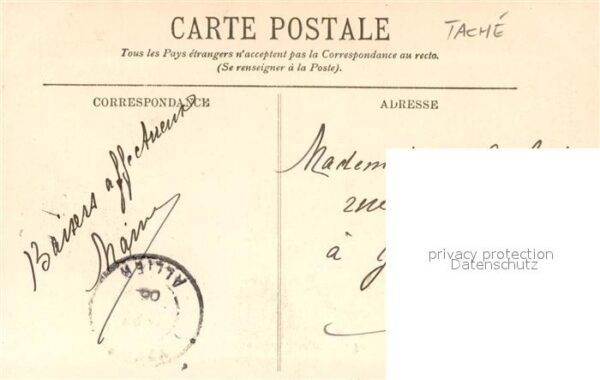 CARTE POSTALE
TACHÉ
Tous les Pays étrangers n'acceptent pas la Correspondance au recto.
(Se renseigner à la Poste).
CORRESPONDANCE
ADRESSE
Baisers affectueux
ALLIER
Madem
rue
à
privacy protection
Datenschutz